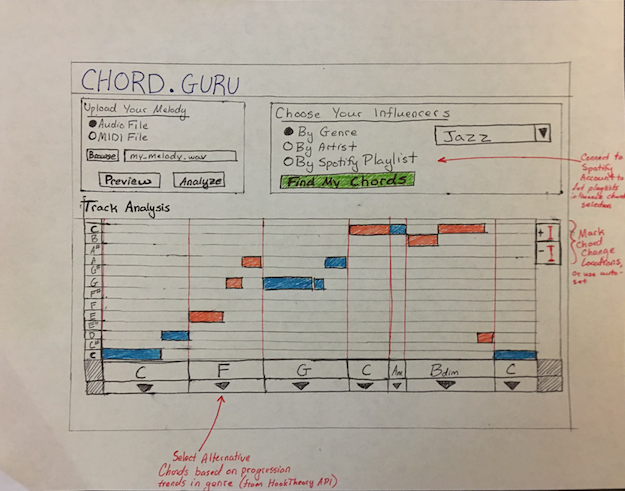 CHORD.GURU
Upload Your Melody
Audio File
MIDI File
Browse my_melody.wav
Preview Analyze
Choose Your Influencers
By Genre
Jazz
By Artist
By Spotify Playlist
Find My Chords
Connect to
Spotify
Account to
let playlists
influence chord
selection
Track Analysis
C
B
A#
A
G#
G
F#
F
E
D
C#
C
+ I
- I
Mark
Chord
Change
Locations,
or use auto-
set
C F G C Am Bdim C
Select Alternative
Chords based on progression
trends in genre (from HookTheory API)